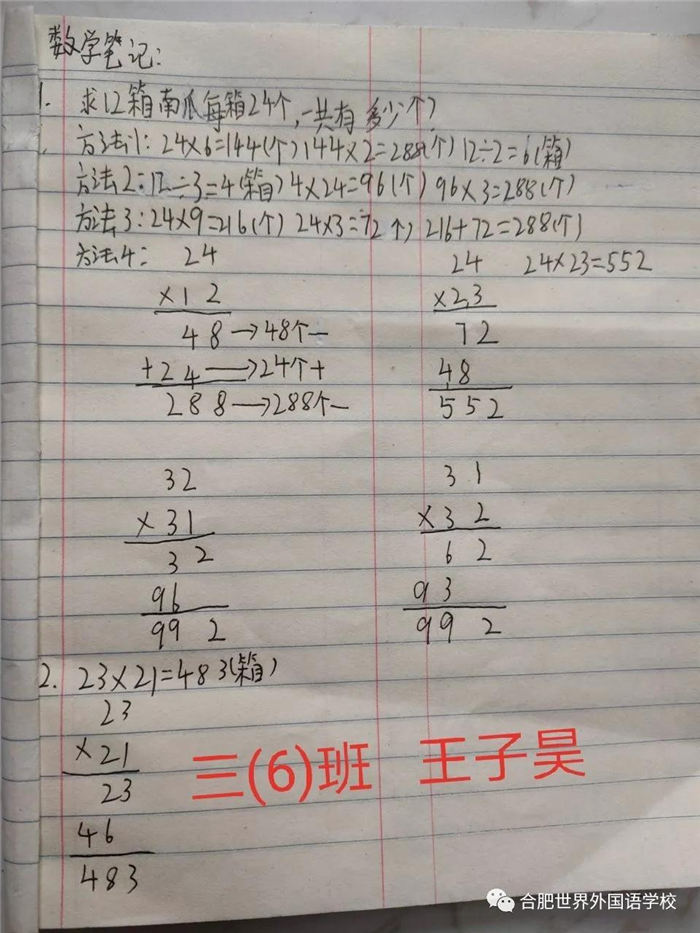 数学笔记:
1. 求12箱南瓜每箱24个,一共有多少个?
方法1: 24×6=144(个) 144×2=288(个) 12÷2=6(箱)
方法2:12÷3=4(箱) 4×24=96(个) 96×3=288(个)
方法3:24×9=216(个) 24×3=72个) 216+72=288(个)
方法4: 24
×12
48→48个一
+24→24个十
288→288个一
24 24×23=552
×23
72
48
552
32
×31
32
96
992
31
×32
62
93
992
2. 23×21=483(箱)
23
×21
23
46
483
三(6)班 王子昊
合肥世界外国语学校